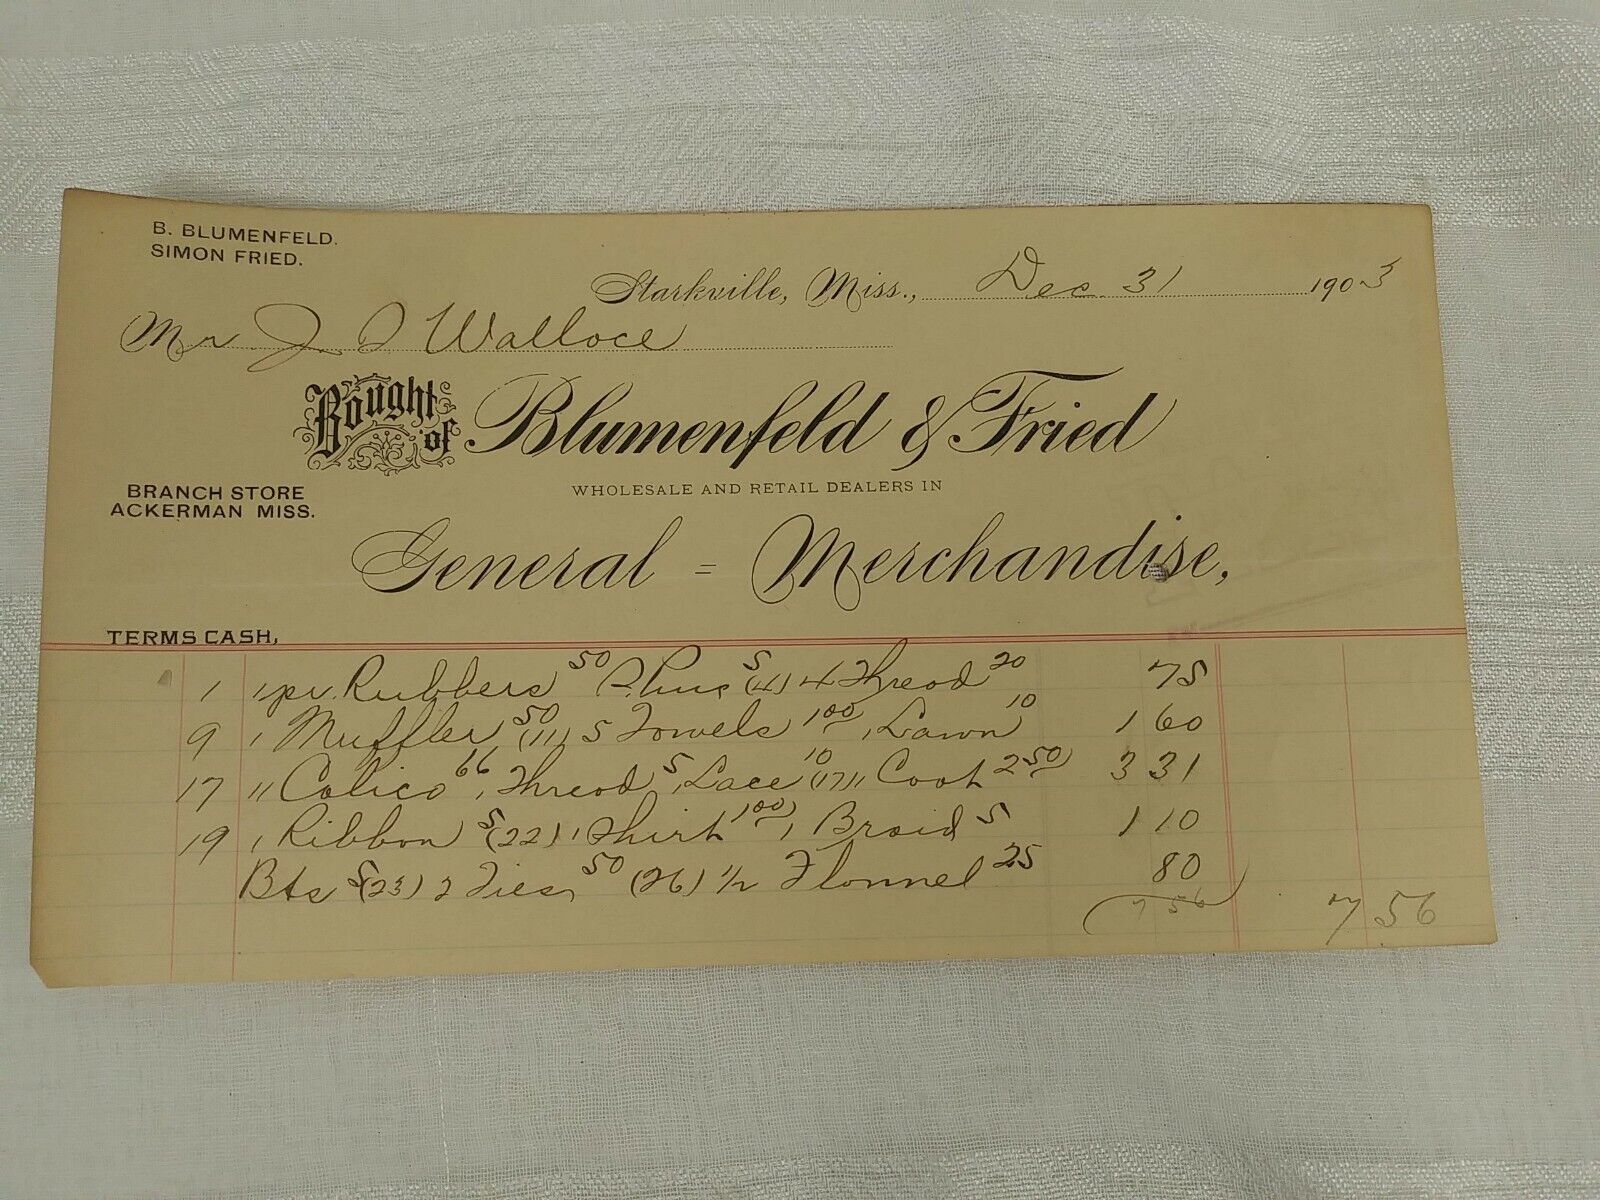 B. BLUMENFELD.
SIMON FRIED.
Starkville, Miss., Dec. 31 1903
Mr J. J Wallace
Bought of Blumenfeld & Fried
WHOLESALE AND RETAIL DEALERS IN
BRANCH STORE
ACKERMAN MISS.
General = Merchandise,
TERMS CASH,
1 1 pr. Rubbers 50 5 (4) 4 Thread 20 75
9 1 Muffler 50 (11) 5 Towels 1 00 , Lawn 10 1 60
17 11 Calico 66 , Thread 5 , Lace 10 (17) , Coat 2 50 3 31
19 , Ribbon 5 (22) , Shirt 1 00 , Braid 5 1 10
Bts 5 (23) 2 Ties 50 (26) 1/2 Flannel 25 80
7 56 7 56